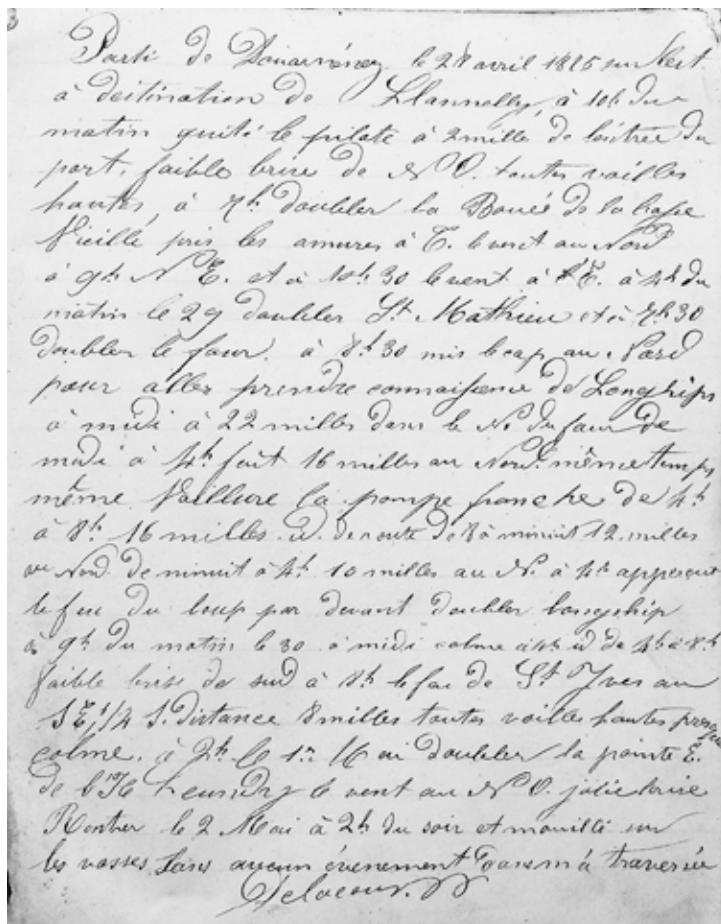 Parti de Douarnénez le 28 avril sur lest
à destination de Llannelly, à 10h du
matin quité le pilote à 2 mille de l'entrée du
port, faible brise de NO. toutes voilles
hautes, à 7h doubler la Boueé de la Basse
Vieille pris les amures à T. le vent au Nord
à 9h N E. et à 10h 30 le vent à l'E. à 4h du
matin le 29 doubler St Mathieu et à 7h30
doubler le four. à 8h30 mis le cap au Nord
pour aller prendre connaissence de Longships
à midi à 22 milles dans le N. du four de
midi à 4h fait 16 milles au Nord. même temps
même Voillure la pompe franche de 4h
à 8h 16 milles. id. de route de 8 à minuit 12. milles
au Nord. De minuit à 4h 10 milles au N. à 4h apperçut
le feu du loup par devant doubler longship
à 9h du matin le 30 à midi calme à 4h id de 4h à 8h
faible brise de sud à 8h le feu de St Yves au
S E 1/4 S. distance 8 milles toutes voilles hautes presque
calme. à 2h le 1er Mai doubler la pointe E.
de l'Ile Leundy le vent au N O. jolie brise
Rentrer le 2 Mai à 2h du soir et mouillé sur
les vasses sans aucun évenement dans m'a traversée
Delacour.